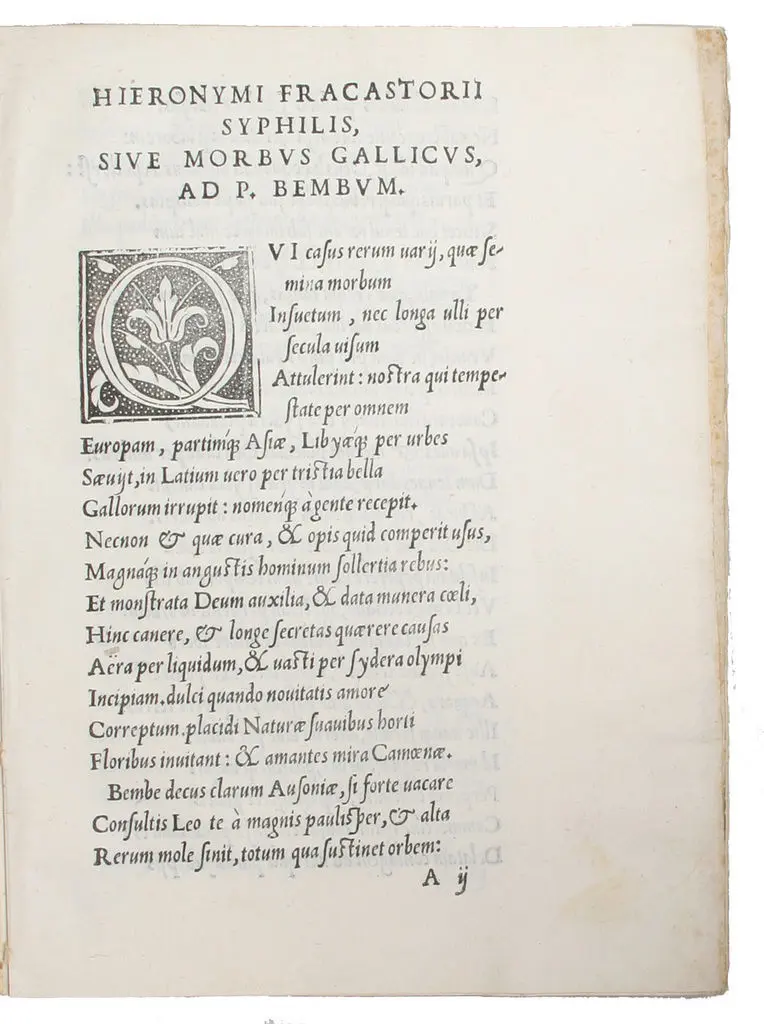 HIERONYMI FRACASTORII
SYPHILIS,
SIVE MORBVS GALLICVS,
AD P. BEMBVM.
QVI caſus rerum uarij, quæ ſe-
mina morbum
Inſuetum, nec longa ulli per
ſecula uiſum
Attulerint: noſtra qui tempe-
ſtate per omnem
Europam, partimq́ꝫ Aſiæ, Libyæq́ꝫ per urbes
Sæuijt, in Latium uero per triſtia bella
Gallorum irrupit: nomenq́ꝫ à gente recepit.
Necnon & quæ cura, & opis quid comperit uſus,
Magnaq́ꝫ in anguſtis hominum ſollertia rebus:
Et monſtrata Deum auxilia, & data munera cœli,
Hinc canere, & longe ſecretas quærere cauſas
Aëra per liquidum, & uaſti per ſydera olympi
Incipiam. dulci quando nouitatis amore
Correptum. placidi Naturæ ſuauibus horti
Floribus inuitant: & amantes mira Camœnæ.
Bembe decus clarum Auſoniæ, ſi forte uacare
Conſultis Leo te à magnis pauliſper, & alta
Rerum mole ſinit, totum qua ſuſtinet orbem:
A ij